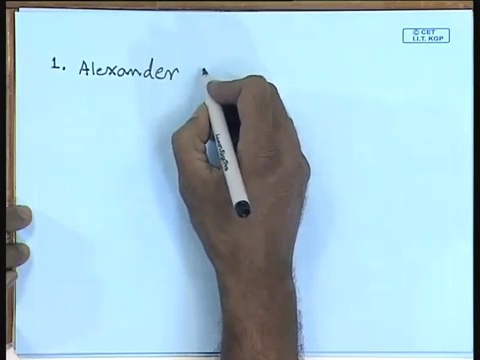 © CET
I.I.T. KGP
1. Alexander